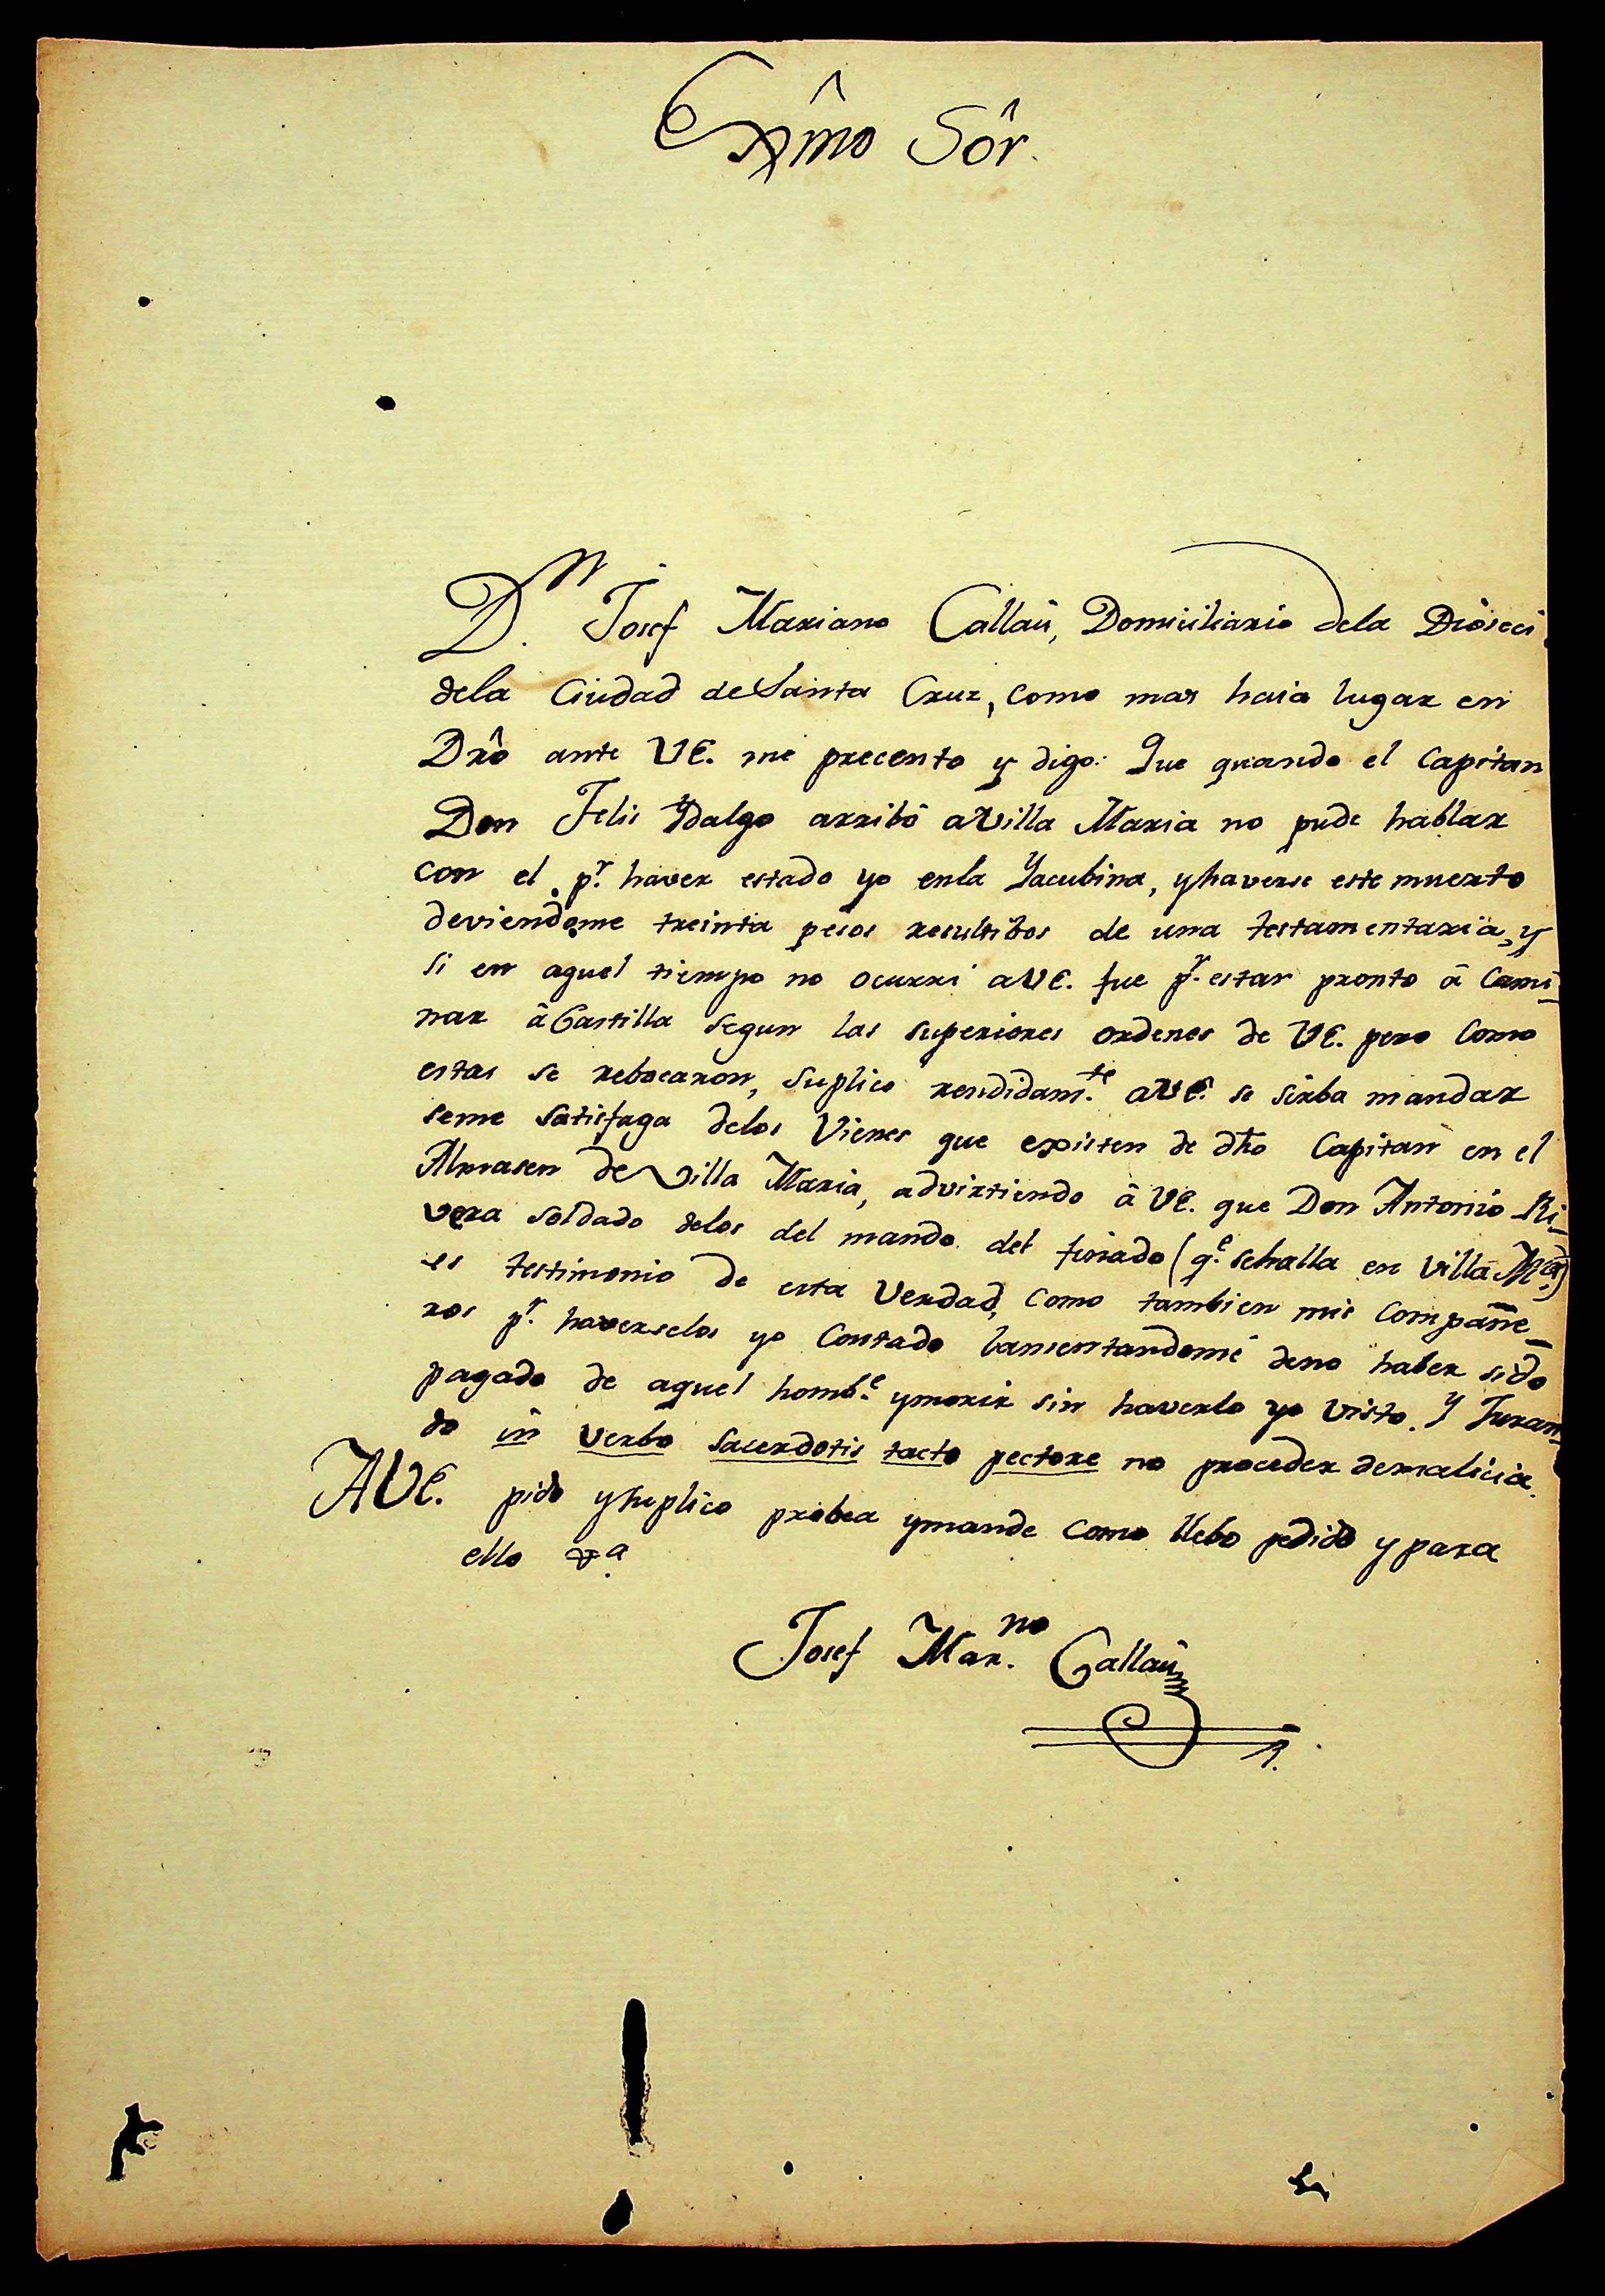 Exmô Sôr.
Dn. Josef Mariano Callaú, Domiciliario dela Diòseci
dela Ciudad de Santa Cruz, como mas haia lugar en
Drô ante VE. me precento y digo: Que quando el Capitan
Don Felis Ydalgo arribô a Villa Maria no pude hablar
con el pr. haver estado yo enla Yacubina, y haverse este muerto
deviendome treinta pesos resultibos de una testamentaria, y
si en aquel tiempo no ocurri a VE. fue pr. estar pronto â Cami-
nar â Castilla segun las superiores ordenes de VE. pero como
estas se rebocaron, suplico rendidamte. a VE. se sirba mandar
seme satisfaga delos Vienes que existen de dho Capitan en el
Almasen de Villa Maria, advirtiendo â VE. que Don Antonio Ri-
vera soldado delos del mando del finado (qe. sehalla en Villa Ma.)
es testimonio de esta Verdad, como tambien mis compañe-
ros pr. haverselos yo Contado lamentandome deno haber sido
pagado de aquel hombe. y morir sin haverlo yo Visto. Y Juran-
do in verbo sacerdotis tacto pectore no proceder demalicia.
AVE. pido y suplico probea y mande como llebo pedido y para
ello &a.
Josef Marno. Callaú